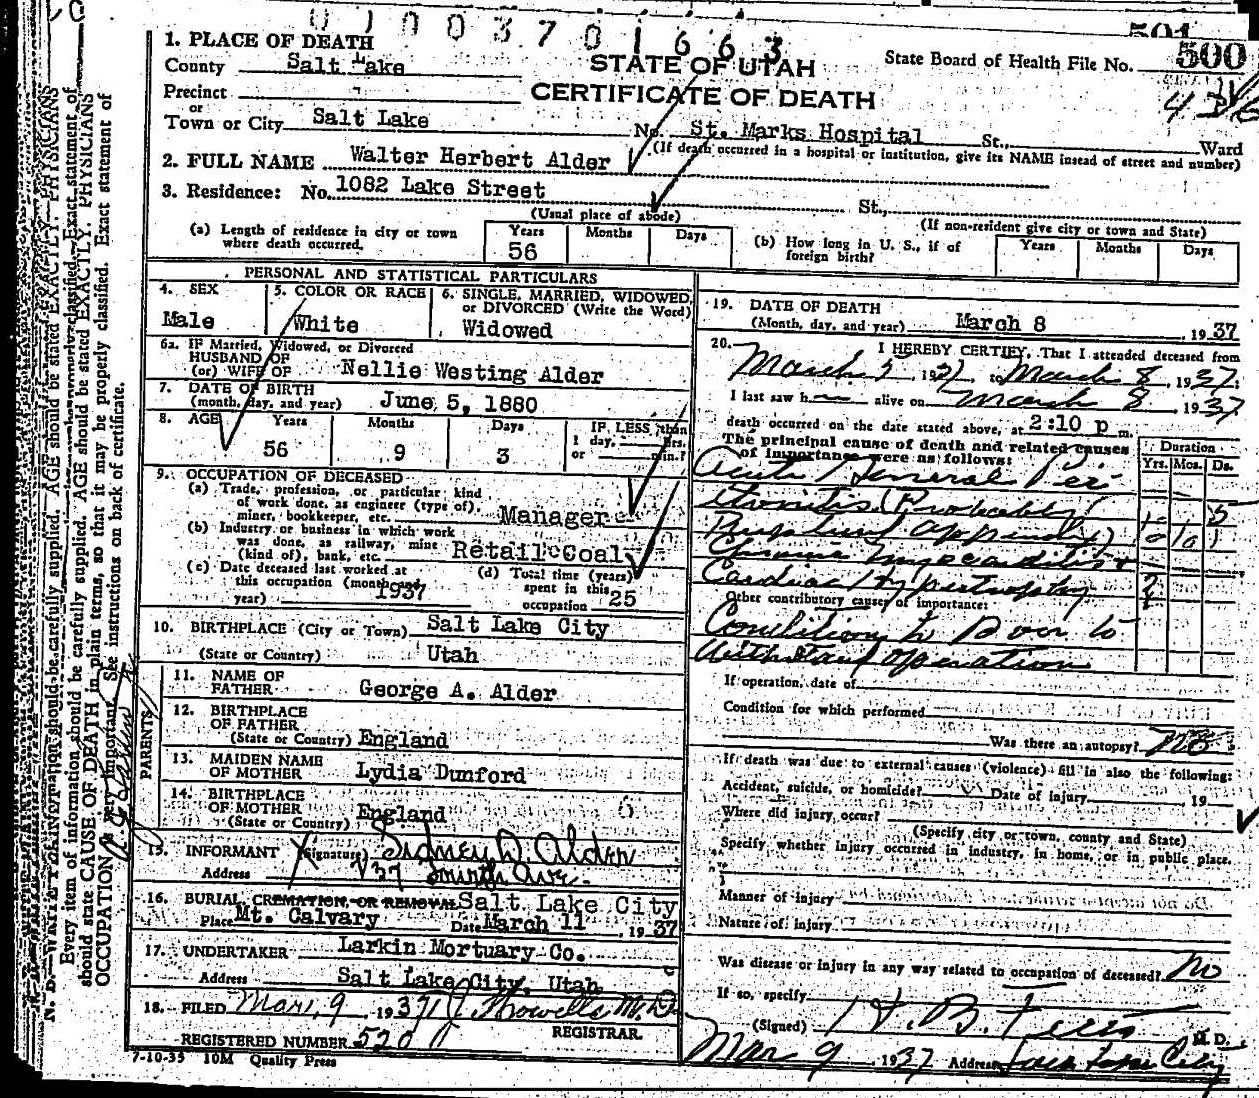 0100370 1663
501
500
1. PLACE OF DEATH
County Salt Lake
STATE OF UTAH
State Board of Health File No.
Precinct
CERTIFICATE OF DEATH
or
Town or City Salt Lake No. St. Marks Hospital St., Ward
(If death occurred in a hospital or institution, give its NAME instead of street and number)
2. FULL NAME Walter Herbert Alder
3. Residence: No. 1082 Lake Street St.,
(Usual place of abode) (If non-resident give city or town and State)
(a) Length of residence in city or town where death occurred. Years 56 Months Days
(b) How long in U. S., if of foreign birth? Years Months Days
PERSONAL AND STATISTICAL PARTICULARS
4. SEX Male
5. COLOR OR RACE White
6. SINGLE, MARRIED, WIDOWED, or DIVORCED (Write the Word) Widowed
6a. IF Married, Widowed, or Divorced
HUSBAND OF
(or) WIFE OF Nellie Westing Alder
7. DATE OF BIRTH
(month, day, and year) June 5, 1880
8. AGE Years 56 Months 9 Days 3 IF LESS than 1 day, hrs. or min.?
9. OCCUPATION OF DECEASED
(a) Trade, profession, or particular kind of work done, as engineer (type of), miner, bookkeeper, etc. Manager
(b) Industry or business in which work was done, as railway, mine (kind of), bank, etc. Retail Coal
(c) Date deceased last worked at this occupation (month and year) 1937
(d) Total time (years) spent in this occupation 25
10. BIRTHPLACE (City or Town) Salt Lake City
(State or Country) Utah
PARENTS
11. NAME OF FATHER George A. Alder
12. BIRTHPLACE OF FATHER
(State or Country) England
13. MAIDEN NAME OF MOTHER Lydia Dunford
14. BIRTHPLACE OF MOTHER
(State or Country) England
15. INFORMANT (Signature) Sidney D Alder
Address
16. BURIAL, CREMATION, OR REMOVAL Salt Lake City
Place Mt. Calvary Date March 11, 1937
17. UNDERTAKER Larkin Mortuary Co.
Address Salt Lake City, Utah
18. FILED Mar, 9, 1937 Howells M.D.
REGISTRAR.
REGISTERED NUMBER 520
7-10-35 10M Quality Press
19. DATE OF DEATH
(Month, day, and year) March 8, 1937
20. I HEREBY CERTIFY, That I attended deceased from
March 1937, to March 8, 1937.
I last saw h alive on March 8, 1937
death occurred on the date stated above, at 2:10 p m.
The principal cause of death and related causes of importance were as follows:
Duration
Yrs. Mos. Ds.
Acute General Per
itonitis (Probably 5
Ruptured appendix)
Myocarditis +
Cardiac Hypertrophy
Other contributory causes of importance:
Condition to Poor to
withstand operation
If operation, date of
Condition for which performed
Was there an autopsy? no
If death was due to external causes (violence) fill in also the following:
Accident, suicide, or homicide? Date of injury 19
Where did injury occur?
(Specify city or town, county and State)
Specify whether injury occurred in industry, in home, or in public place.
Manner of injury
Nature of injury
Was disease or injury in any way related to occupation of deceased? No
If so, specify
(Signed) M. D.
Mar 9, 1937 Address Salt Lake City
Every item of information should be carefully supplied. AGE should be stated EXACTLY. PHYSICIANS
should state CAUSE OF DEATH in plain terms, so that it may be properly classified. Exact statement of
OCCUPATION is very important. See instructions on back of certificate.